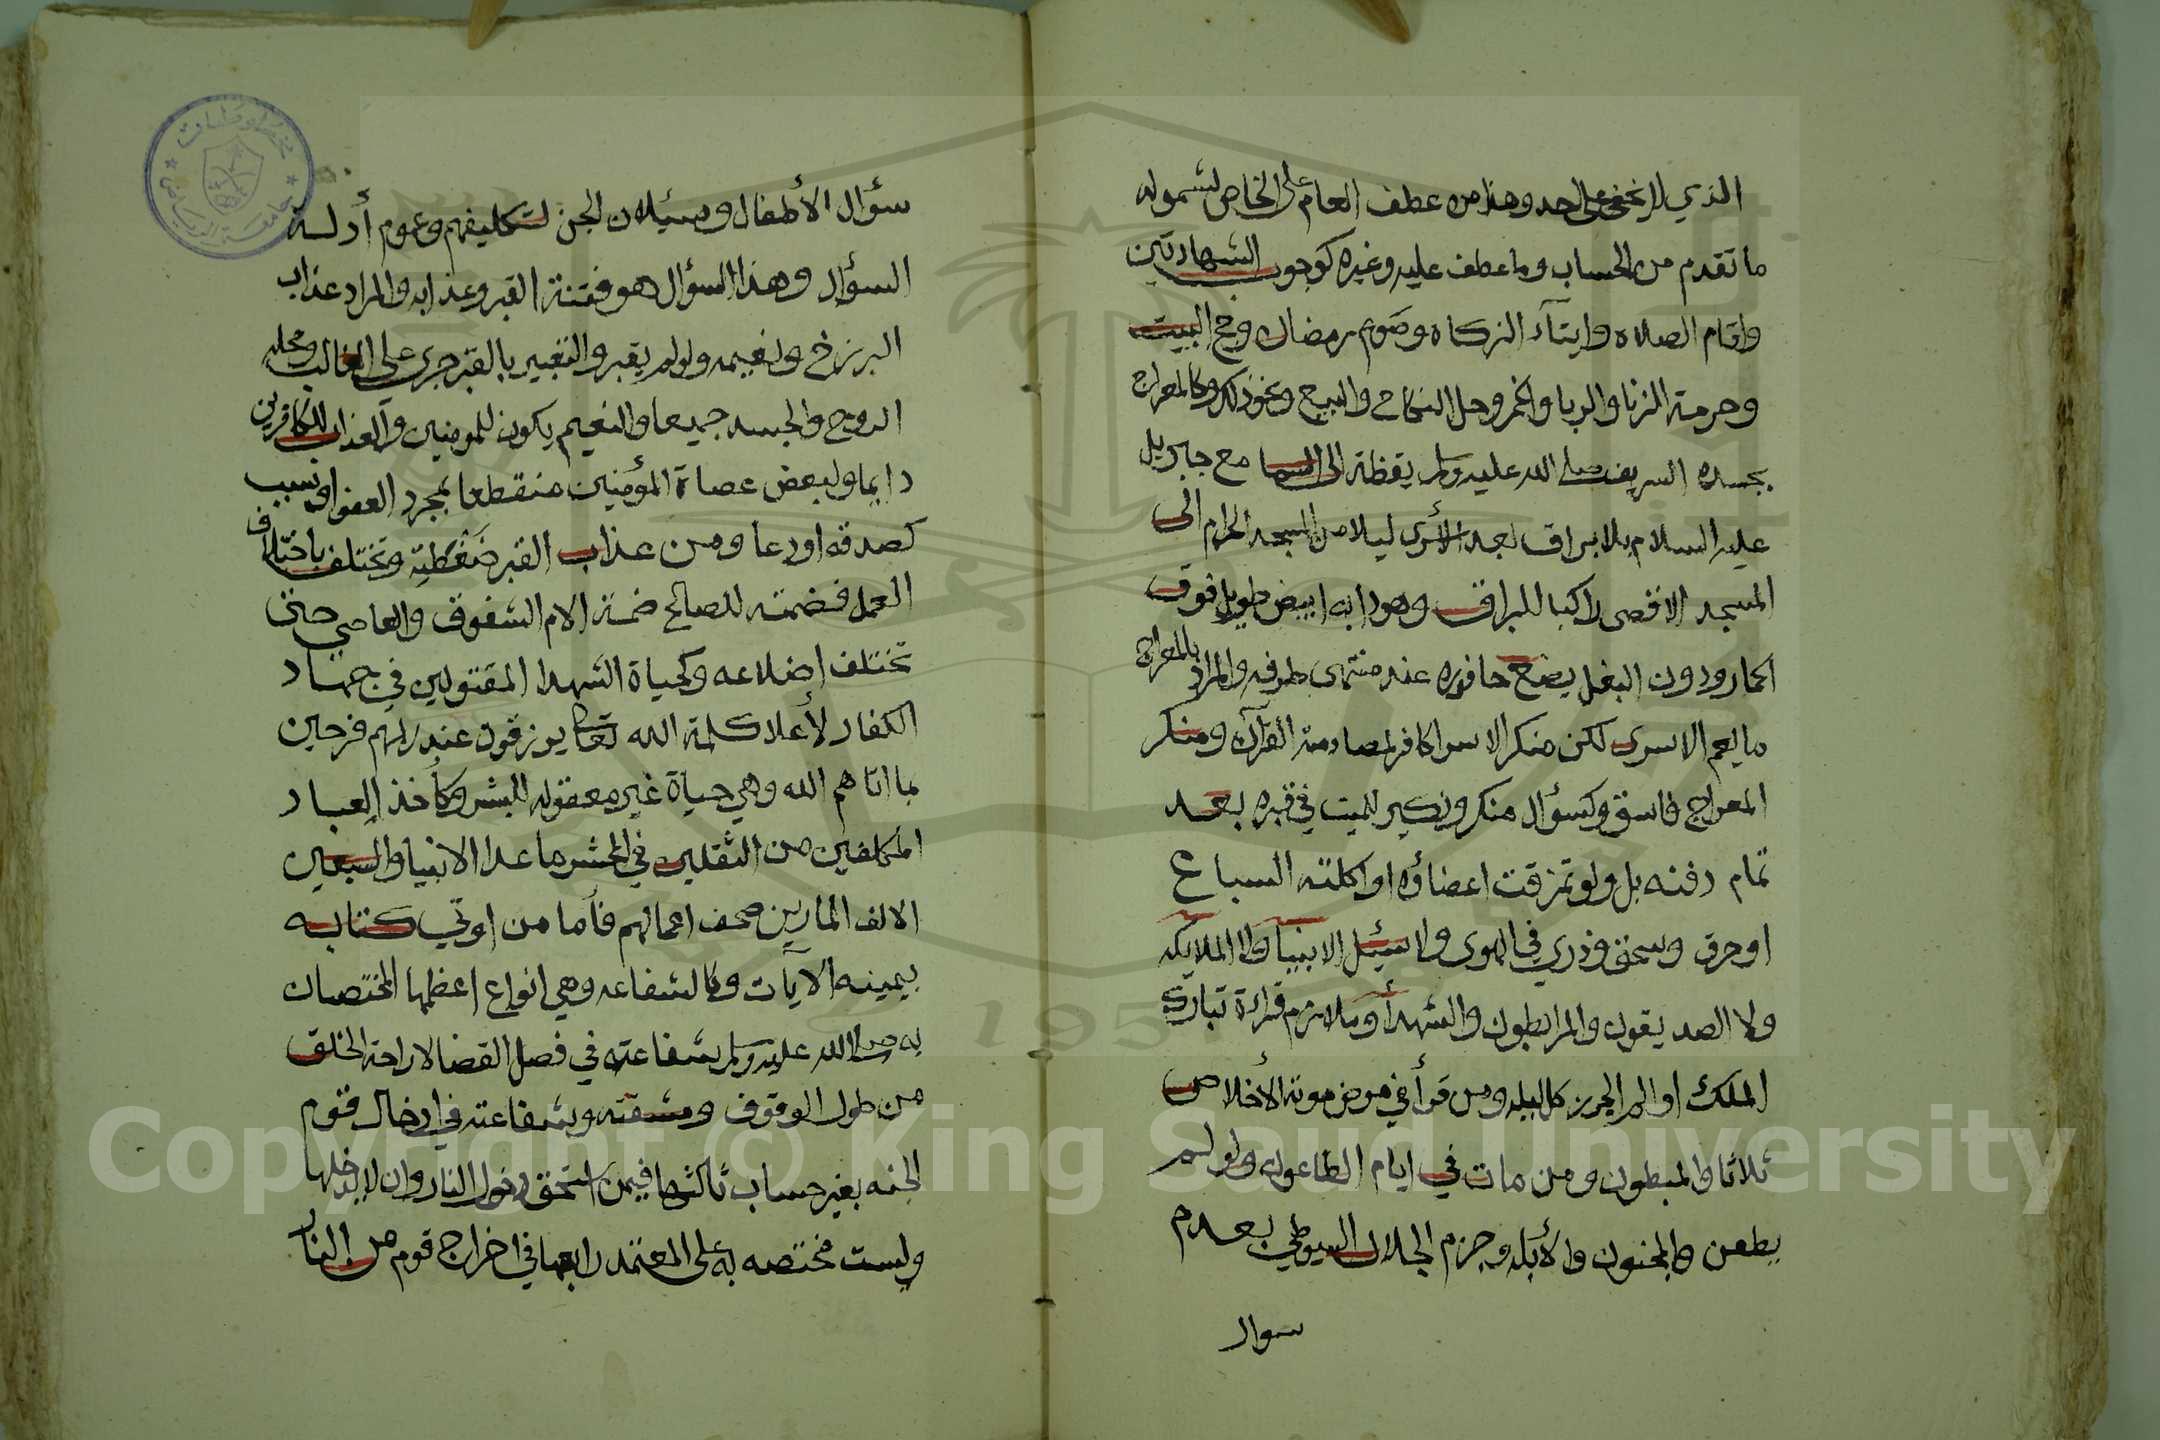 الذي لا يخفى على احد وهذا من عطف العام على الخاص لشموله
ما تقدم من الحساب وما عطف عليه وغيره كوجوب الشهادتين
واقام الصلاه وايتآء الزكاه وصوم رمضان وحج البيت
وحرمة الزنا والربا والخمر وحل النكاح والبيع ونحو ذلك وكالمعراج
بجسده الشريف صلى الله عليه وسلم يقظة الى السما مع جبريل
عليه السلام بلا براق بعد الأسرى ليلا من المسجد الحرام الى
المسجد الاقصى راكبا للبراق وهو دابه ابيض طويل فوق
الحمار ودون البغل يضع حافره عند منتهى طرفه والمراد بالمعراج
ما يعم الاسرى لكن منكر الاسرا كافر لمصادمته القرآن ومنكر
المعراج فاسق وكسؤال منكر ونكير للميت في قبره بعد
تمام دفنه بل ولو تمزقت اعضاؤه او اكلته السباع
او حرق وسحق وذري في الهوى ولا سيئل الانبيا ولا الملايكه
ولا الصديقون والمرابطون والشهدأ وملازم قراءة تبارك
الملك او الم الجرز كل ليله ومن قرأ في مرض موته الأخلاص
ثلاثا والمبطون ومن مات في ايام الطاعون ولو لم
يطعن والمجنون والأبله وجزم الجلال السيوطي بعدم
سوال
سؤال الأطفال وسيئلان الجن لتكليفهم وعموم أدلة
السؤال وهذا السؤال هو فتنة القبر وعذابه والمراد عذاب
البرزخ ونعيمه ولو لم يقبر والتعبير بالقبر جري على الغالب ومحله
الروح والجسد جميعا والنعيم يكون للمومنين والعذاب للكافرين
دايما ولبعض عصاة المؤمنين منقطعا بمجرد العفو او بسبب
كصدقه او دعا ومن عذاب القبر ضغطته وتختلف باختلاف
العمل فضمته للصالح ضمة الام الشفوق والعاصي حتى
تختلف اضلاعه وكحياة الشهدا المقتولين في جهاد
الكفار لأعلا كلمة الله تعالى يرزقون عند ربهم فرحين
بما اتاهم الله وهي حياة غير معقوله للبشر وكأخذ العباد
المكلفين من الثقلين في الحشر ما عدا الانبيا والسبعين
الالف المارين صحف اعمالهم فأما من اوتي كتابه
بيمينه الآيات وكالشفاعه وهي انواع اعظمها المختصان
به صلى الله عليه وسلم شفاعته في فصل القضا لاراحة الخلق
من طول الوقوف ومشقته وشفاعته في ادخال قوم
الجنه بغير حساب ثالثها فيمن استحق دخول النار وان لا يدخلها
وليست مختصه به على المعتمد رابعها في اخراج قوم من النار
Copyright © King Saud University